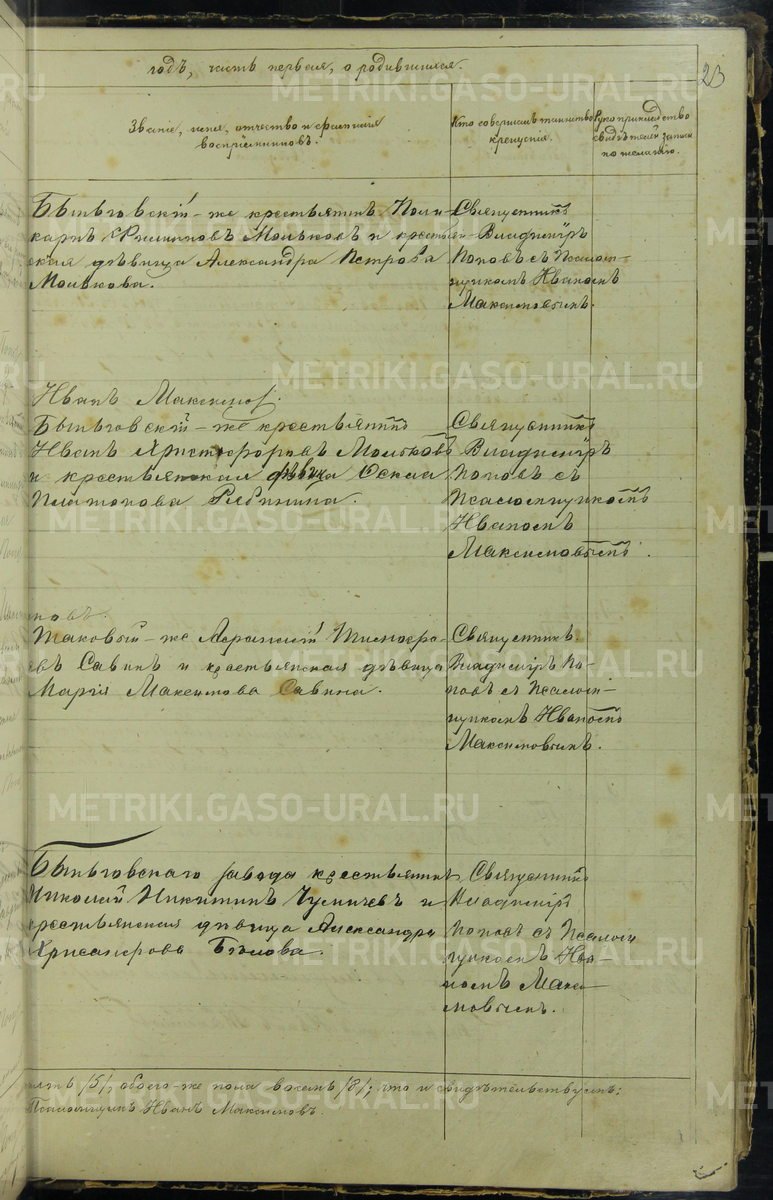 23
годъ, часть первая, о родившихся.
Званіе, имя, отчество и фамилія
воспріемниковъ.
Кто совершалъ таинство
крещенія.
Рукоприкладство
свидѣтелей записи
по желанію.
Быньговскій-же крестьянинъ Поли-
карпъ Филиповъ Мольковъ и крестьян-
ская дѣвица Александра Петрова
Молькова.
Священникъ
Владиміръ
Поповъ съ Псалом-
щикомъ Иваномъ
Максимовымъ.
Иванъ Максимов.
Быньговскій-же крестьянинъ
Иванъ Христофоровъ Мольковъ
и крестьянская дѣвица
Платонова Рябинина.
Священникъ
Владиміръ
Поповъ съ
Псаломщикомъ
Иваномъ
Максимовымъ.
новъ.
Таковый-же
въ Савинъ и крестьянская дѣвица
Марія Максимова Савина.
Священникъ
Владиміръ По-
повъ съ Псалом-
щикомъ Иваномъ
Максимовымъ.
Быньговскаго завода крестьянинъ
Николай Никитинъ и
крестьянская дѣвица Александра
Хрисанфова Бѣлова.
Священникъ
Владиміръ
Поповъ съ Псалом
щикомъ Ива-
номъ Макси-
мовымъ.
пять /5/, обоего-же пола восемь /8/; что и свидѣтельствуемъ:
Псаломщикъ Иванъ Максимовъ.
METRIKI.GASO-URAL.RU